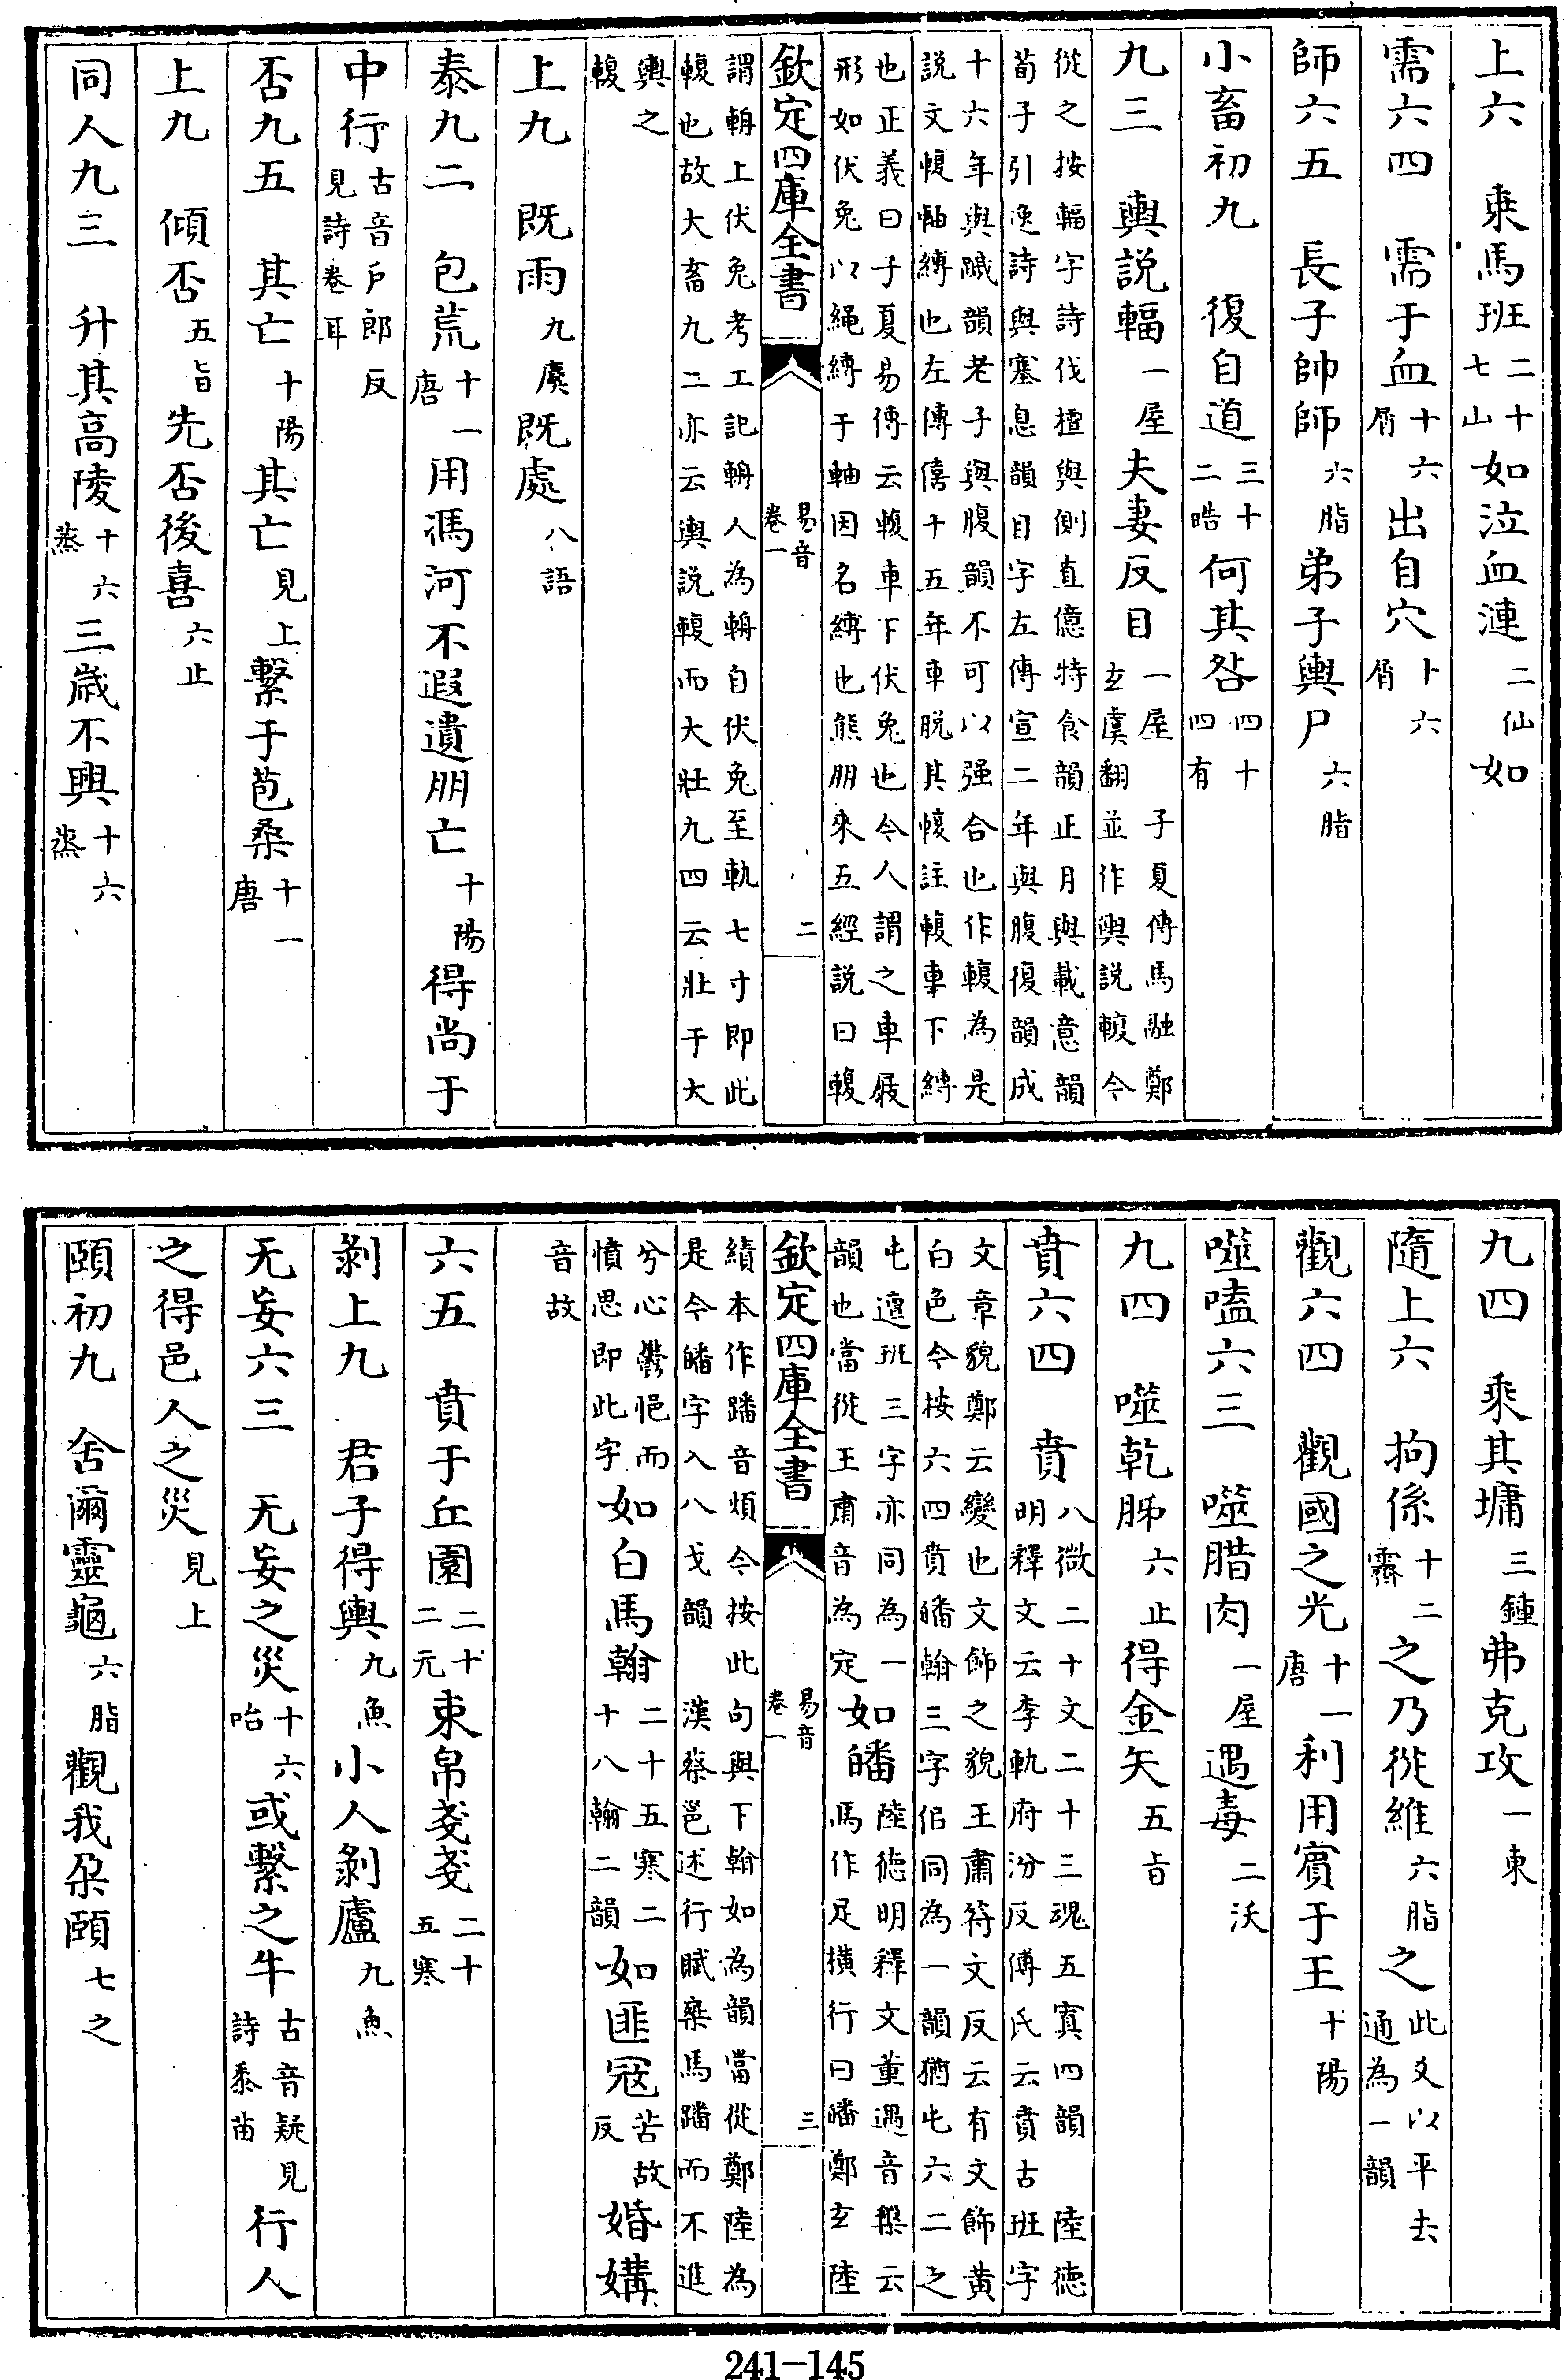 上六　乘馬班二十七山如泣血漣二仙如
需六四　需于血十六屑出自穴十六屑
師六五　長子帥師六脂弟子輿尸六脂
小畜初九　復自道三十二晧何其咎四十四有
九三　輿説輻一屋夫妻反目一屋　子夏傳馬融鄭
玄虞翻並作輿説輹今
從之按輻字詩伐檀與側直億特食韻正月與載意韻
荀子引逸詩與塞息韻目字左傳宣二年與腹復韻成
十六年與䠞韻老子與腹韻不可以强合也作輹為是
説文輹軸縛也左傳僖十五年車脱其輹註輹車下縛
也正義曰子夏易傳云輹車下伏兔也今人謂之車屐
形如伏兔以繩縛于軸因名縛也熊朋來五經説曰輹
欽定四庫全書　易音　卷一　二
謂輈上伏兔考工記輈人為輈自伏兔至軌七寸即此
輹也故大畜九二亦云輿説輹而大壯九四云壯于大
輿之
輹
上九　既雨九麌既處八語
泰九二　包荒十一唐用馮河不遐遺朋亡十陽得尚于
中行古音戶郎反見詩卷耳
否九五　其亡十陽其亡見上繫于苞桑十一唐
上九　傾否五旨先否後喜六止
同人九三　升其高陵十六蒸三歲不興十六蒸
九四　乘其墉三鍾弗克攻一東
隨上六　拘係十二霽之乃從維六脂之此爻以平去通為一韻
觀六四　觀國之光十一唐利用賓于王十陽
噬嗑六三　噬腊肉一屋遇毒二沃
九四　噬乾胏六止得金矢五旨
賁六四　賁八微二十文二十三魂五寘四韻　陸德
明釋文云李軌府汾反傅氏云賁古班字
文章貌鄭云變也文飾之貌王肅符文反云有文飾黄
白色今按六四賁皤翰三字似同為一韻猶屯六二之
屯邅班三字亦同為一韻也當從王肅音為定如皤陸德明釋文董遇音槃云
馬作足橫行曰皤鄭玄陸
欽定四庫全書　易音　卷一　三
績本作蹯音煩今按此句與下翰如為韻當從鄭陸為
是今皤字入八戈韻　漢蔡邕述行賦乘馬蹯而不進
兮心鬱悒而憤思即此字如白馬翰二十五寒二十八翰二韻如匪寇苦故反婚媾
音故
六五　賁于丘園二十二元束帛戔戔二十五寒
剝上九　君子得輿九魚小人剝廬九魚
无妄六三　无妄之災十六咍或繫之牛古音疑見詩黍苗行人
之得邑人之災見上
頤初九　舍爾靈龜六脂觀我朵頤七之
241-145